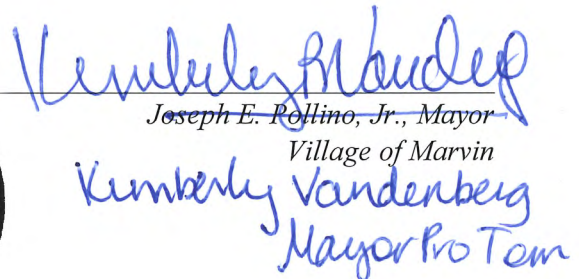 Kimberly B Vandenberg
Joseph E. Pollino, Jr., Mayor
Village of Marvin
Kimberly Vandenberg
Mayor Pro Tem